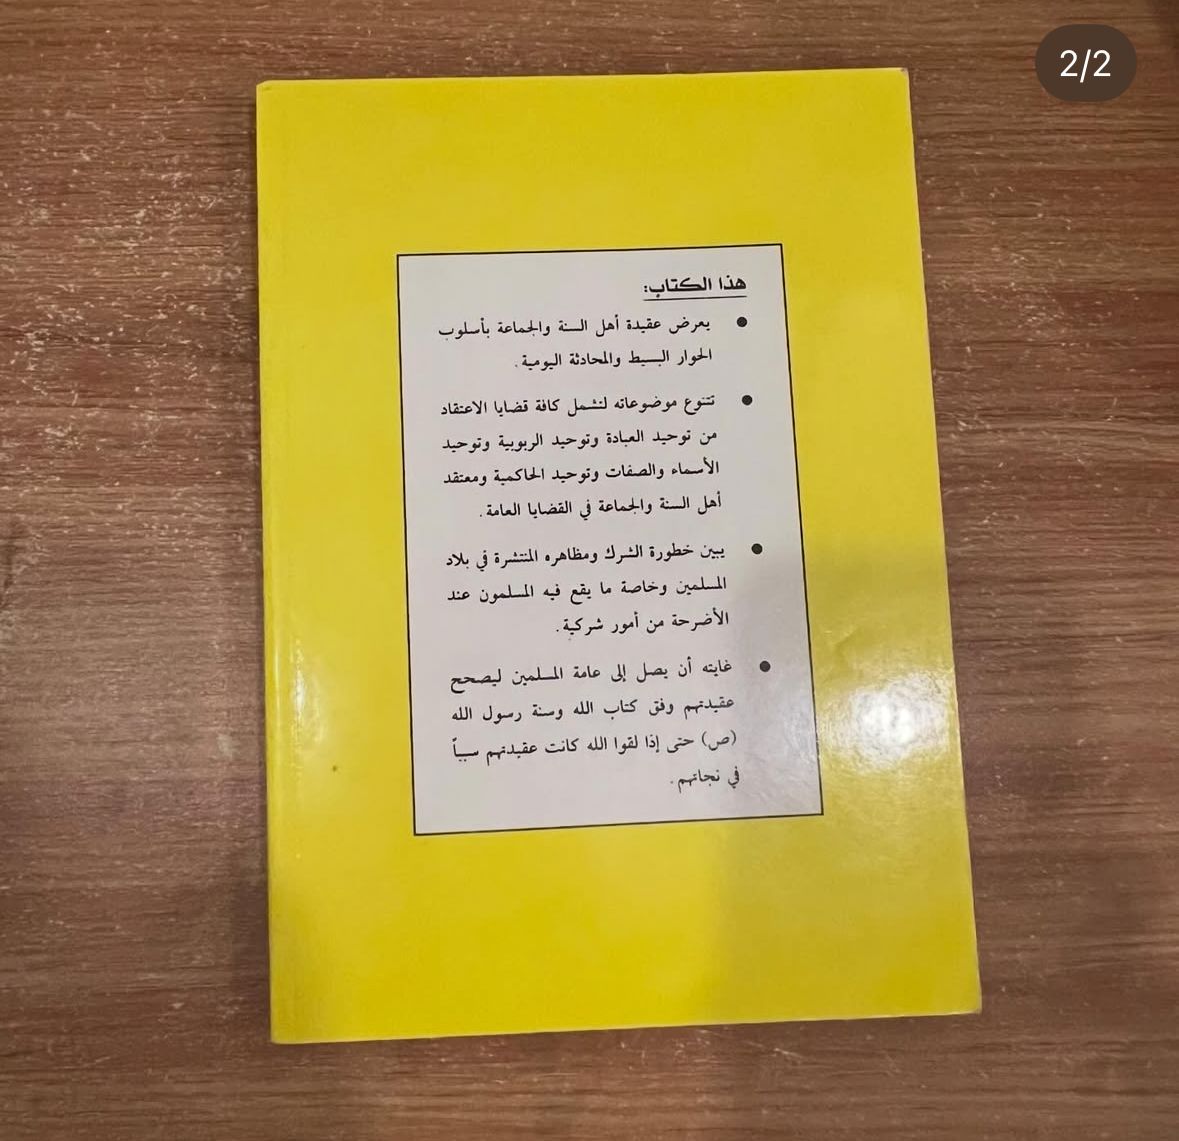 2/2
هذا الكتاب:
● يعرض عقيدة أهل السنة والجماعة بأسلوب
الحوار البسيط والمحادثة اليومية.
● تتنوع موضوعاته لتشمل كافة قضايا الاعتقاد
من توحيد العبادة وتوحيد الربوبية وتوحيد
الأسماء والصفات وتوحيد الحاكمية ومعتقد
أهل السنة والجماعة في القضايا العامة.
● يبين خطورة الشرك ومظاهره المنتشرة في بلاد
المسلمين وخاصة ما يقع فيه المسلمون عند
الأضرحة من أمور شركية.
● غايته أن يصل إلى عامة المسلمين ليصحح
عقيدتهم وفق كتاب الله وسنة رسول الله
(ص) حتى إذا لقوا الله كانت عقيدتهم سبباً
في نجاتهم.